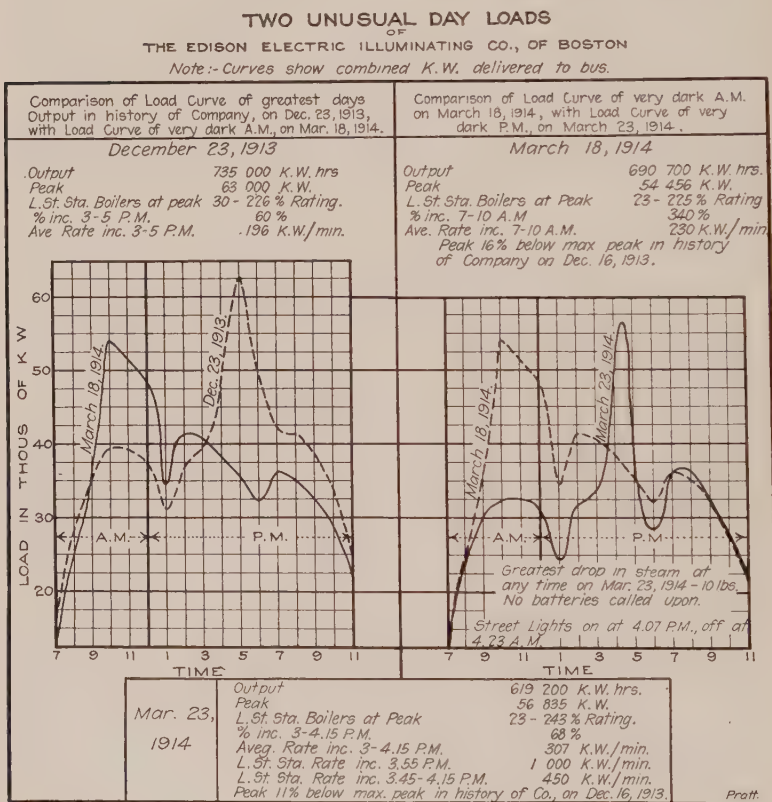 TWO UNUSUAL DAY LOADS
OF
THE EDISON ELECTRIC ILLUMINATING CO., OF BOSTON
Note:- Curves show combined K.W. delivered to bus.
Comparison of Load Curve of greatest days
Output in history of Company, on Dec. 23, 1913,
with Load Curve of very dark A.M., on Mar. 18, 1914.
December 23, 1913
Output 735 000 K.W. hrs
Peak 63 000 K.W.
L. St. Sta. Boilers at peak 30-226% Rating.
% inc. 3-5 P.M. 60%
Ave Rate inc. 3-5 P.M. 196 K.W./min.
Comparison of Load Curve of very dark A.M.
on March 18, 1914, with Load Curve of very
dark P.M., on March 23, 1914.
March 18, 1914
Output 690 700 K.W. hrs.
Peak 54 456 K.W.
L. St. Sta. Boilers at Peak 23-225% Rating
% inc. 7-10 A.M 340%
Ave. Rate inc. 7-10 A.M. 230 K.W./min
Peak 16% below max peak in history
of Company on Dec. 16, 1913.
LOAD IN THOUS OF K W
60
50
40
30
20
March 18, 1914.
Dec. 23, 1913.
A.M. P.M.
7 9 11 1 3 5 7 9 11
TIME
March 18, 1914.
March 23, 1914.
A.M. P.M
Greatest drop in steam at
any time on Mar. 23, 1914-10 lbs.
No batteries called upon.
Street Lights on at 4.07 P.M., off at
4.23 A.M.
7 9 11 1 3 5 7 9 11
TIME
Mar. 23,
1914
Output 619 200 K.W. hrs.
Peak 56 835 K.W.
L. St. Sta. Boilers at Peak 23-243% Rating.
% inc. 3-4.15 P.M. 68%
Aveg. Rate inc. 3-4.15 P.M. 307 K.W./min.
L. St. Sta. Rate inc. 3.55 P.M. 1 000 K.W./min.
L. St. Sta. Rate inc. 3.45-4.15 P.M. 450 K.W./min.
Peak 11% below max. peak in history of Co., on Dec. 16, 1913.
Pratt.